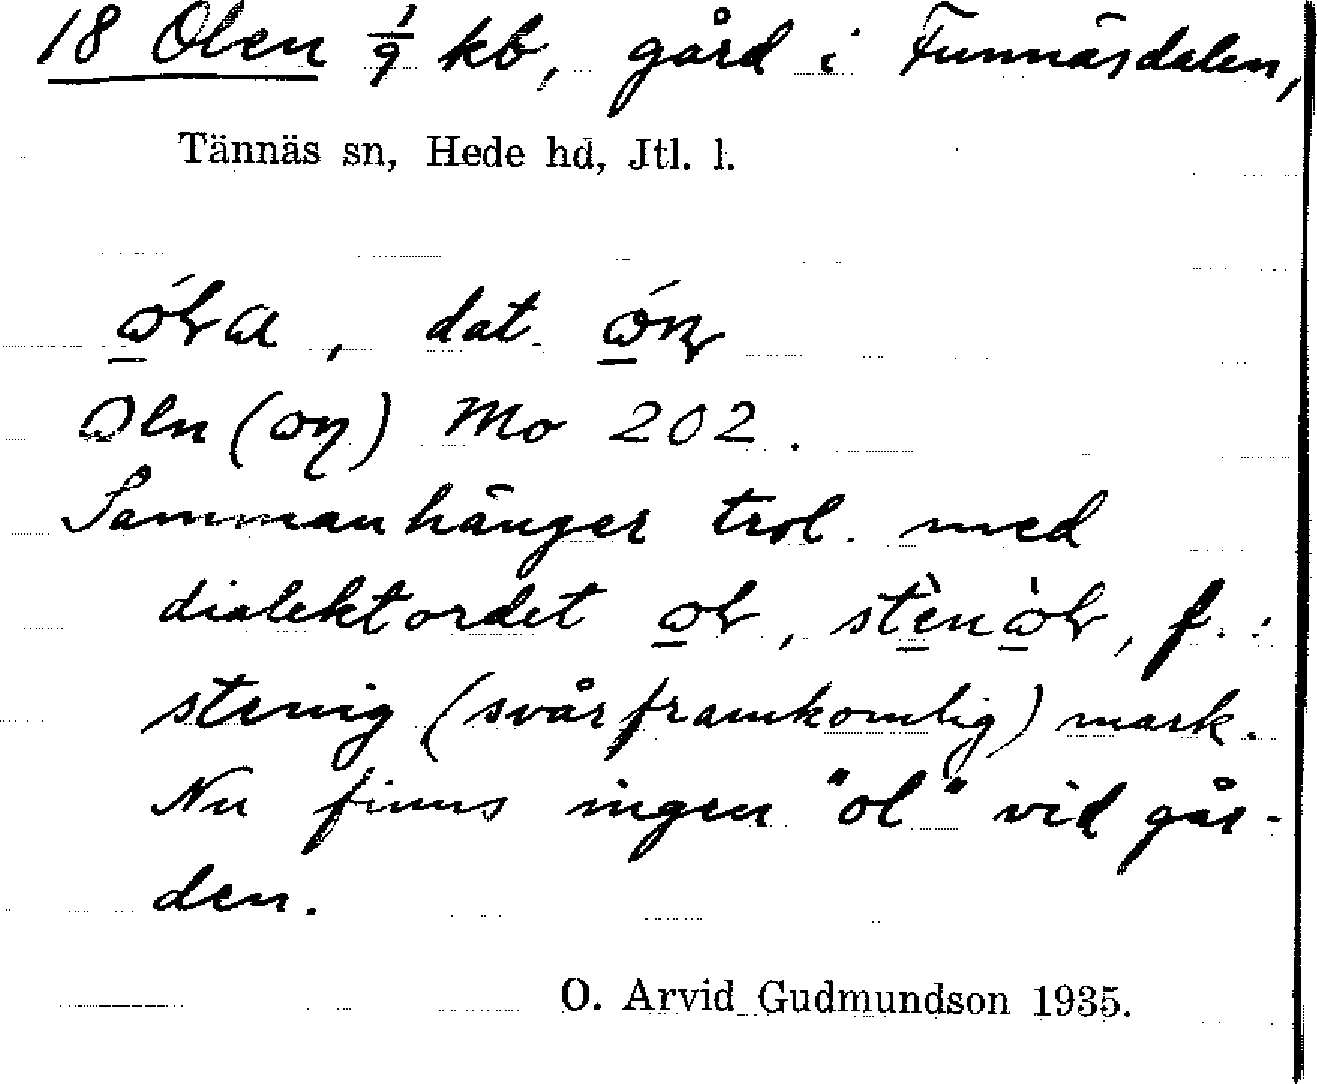 18 Olen 1/9 kb, gård i Funnäsdalen,
Tännäs sn, Hede hd, Jtl. l.
dat.
Oln ( ) Mo 202.
Sammanhänger trol. med
dialektordet , , f. :
stenig (svårframkomlig) mark.
Nu finns ingen "ol" vid går-
den.
O. Arvid Gudmundson 1935.